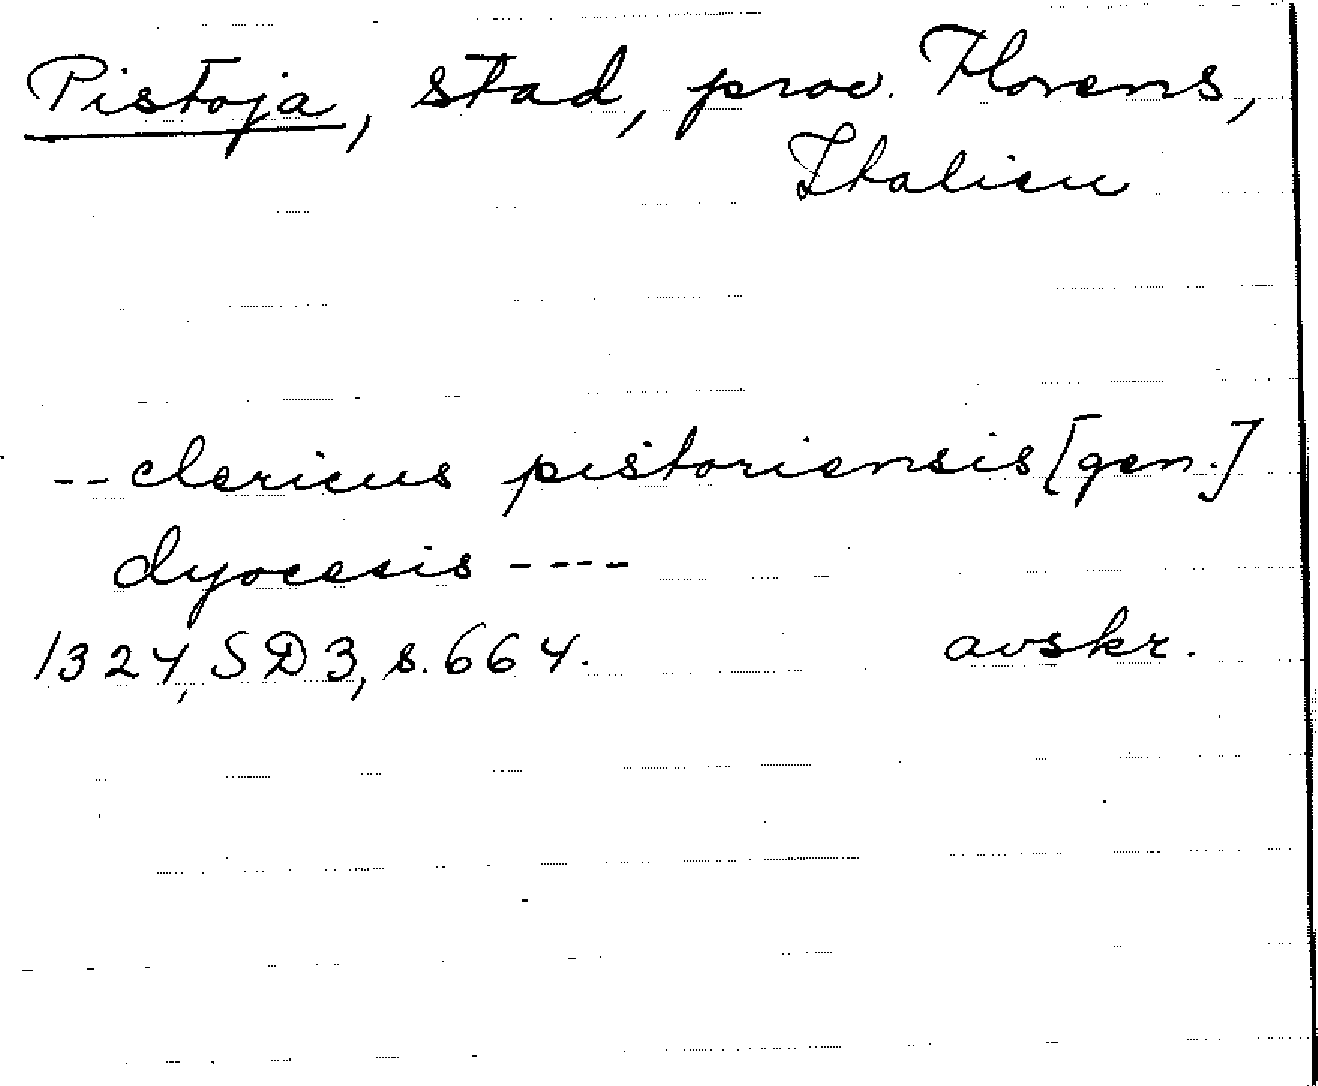 Pistoja, stad, prov. Florens,
Italien
-- clericus pistoriensis [gen.]
dyocesis ----
1324, SD3, s. 664. avskr.